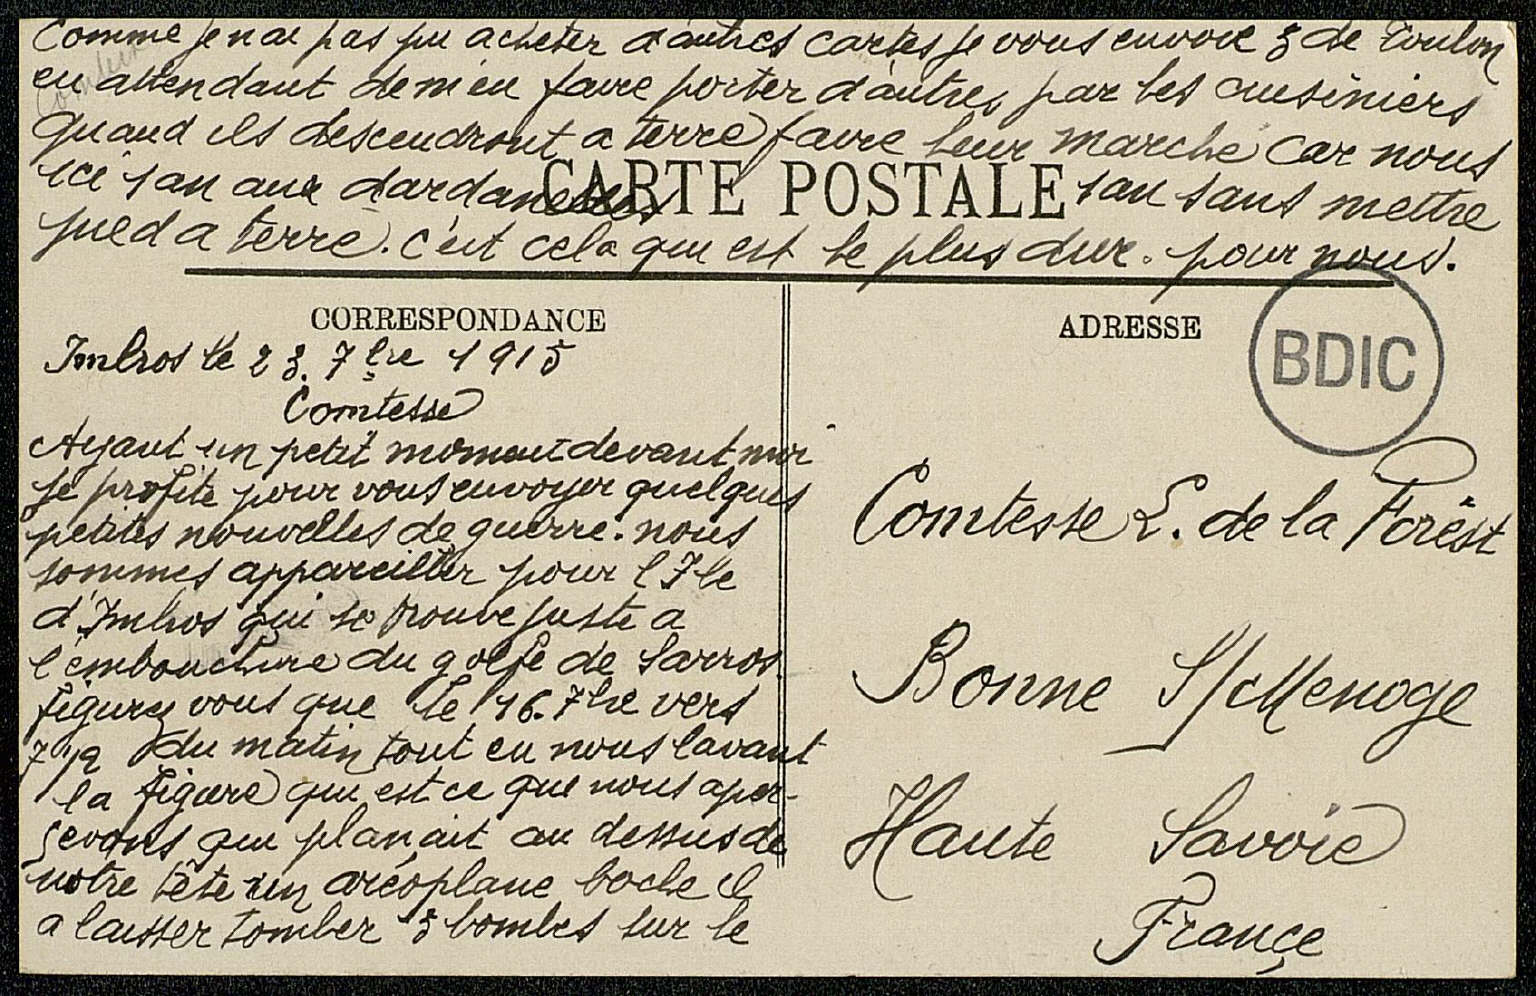 Comme je nai pas pu acheter d'autres cartes je vous envoie 3 de Toulon
en attendant de m'en faire porter d'autres par les cuisiniers
quand ils descendront a terre faire leur marche car nous
ici 1 an aux dardanelles 1 an sans mettre
pied a terre. c'est cela qui est le plus dur. pour nous.
CARTE POSTALE
CORRESPONDANCE
Imbros le 23. 7bre 1915
Comtesse
Ayant un petit moment devant moi
je profite pour vous envoyer quelques
petites nouvelles de guerre. nous
sommes appareiller pour l'Ile
d'Imbros qui se trouve juste a
l'embouchure du golfe de Sarros.
figurez vous que le 16. 7bre vers
7 1/2 du matin tout en nous lavant
la figure qu est ce que nous aper-
çevons qui planait au dessus de
notre tête un aréoplane boche il
a laisser tomber 3 bombes sur le
ADRESSE
BDIC
Comtesse L. de la Forêst
Bonne S/Menoge
Haute Savoie
Françe